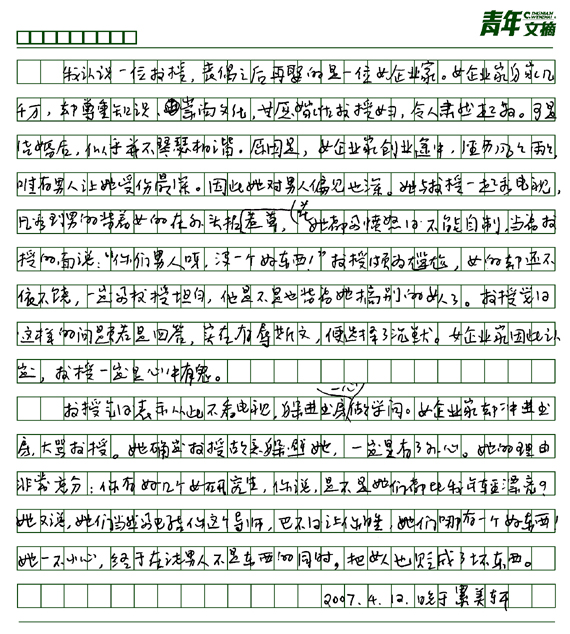 青年文摘
我认识一位教授，丧偶之后再娶的是一位女企业家。女企业家身家几
千万，却尊重知识、崇尚文化，甘愿嫁给教授为妇，令人肃然起敬。可是
结婚后，似乎并不琴瑟和谐。原因是，女企业家创业途中，历
唯有男人让她受伤最深。因此她对男人偏见也深。她与教授一起看电视，
凡看到男的背着女的在外头拈花惹草，她都要愤怒得不能自制，当着教
授的面说：“你们男人呀，没一个好东西！”教授颇为尴尬，女的却还不
依不饶，一定要教授坦白，他是不是也背着她搞别的女人了。教授觉得
这样的问题若是回答，实在有辱斯文，便选择了沉默。女企业家因此认
定，教授一定是心中有鬼。
教授气得表示从此不看电视，躲进书房一心做学问。女企业家却冲进书
房，大骂教授。她确定教授故意躲避她，一定是有了外心。她的理由
非常充分：你有好几个女研究生，你说，是不是她们都比我年轻漂亮？
她又说，她们当然要巴结你这个导师，巴不得让你睡，她们哪有一个好东西！
她一不小心，终于在说男人不是东西的同时，把女人也贬成了坏东西。
2007.4.12.晚于累美轩